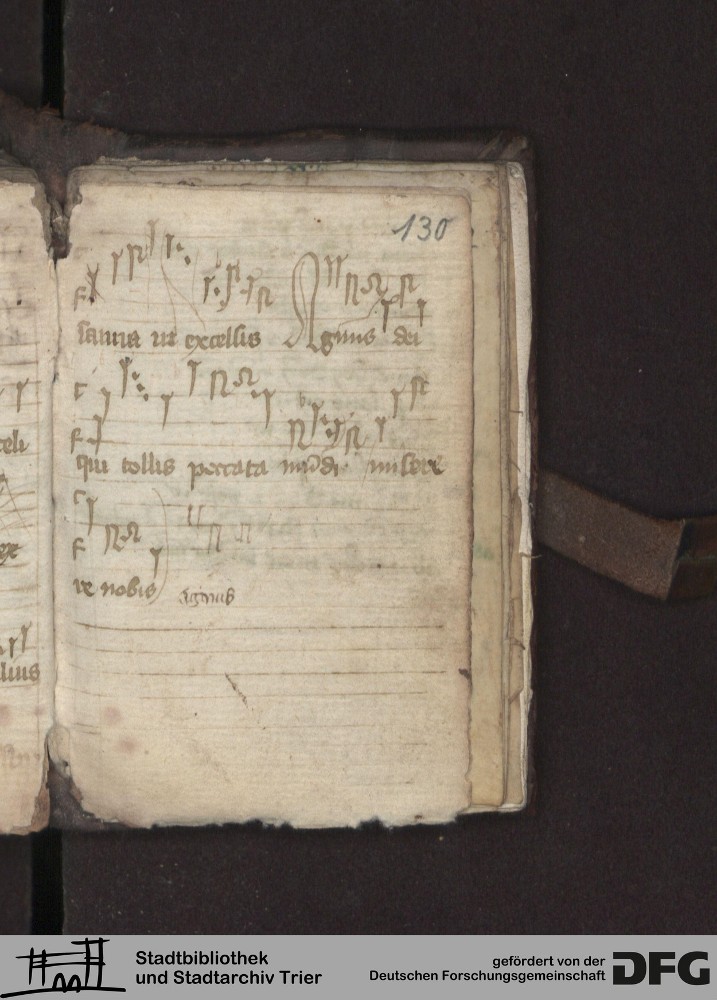 130
sanna in excellis Agnus dei
qui tollis peccata mu̅di misere
re nobis agnus
celi
lius
Stadtbibliothek
und Stadtarchiv Trier
gefördert von der
Deutschen Forschungsgemeinschaft
DFG